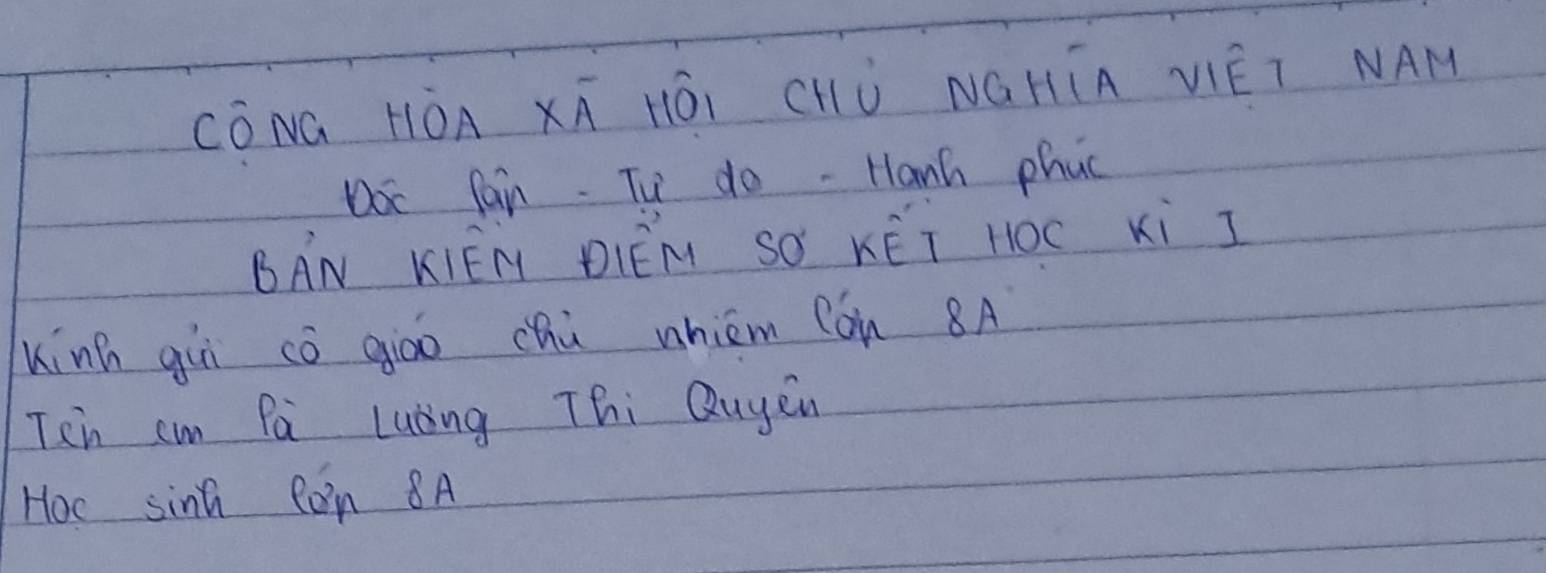 CỘNG HÒA XÃ HỘI CHỦ NGHĨA VIỆT NAM
Độc lập - Tự do - Hạnh phúc
BẢN KIỂM ĐIỂM SƠ KẾT HỌC KÌ I
Kính gửi cô giáo chủ nhiệm lớp 8A
Tên em là Lường Thị Quyên
Học sinh lớp 8A